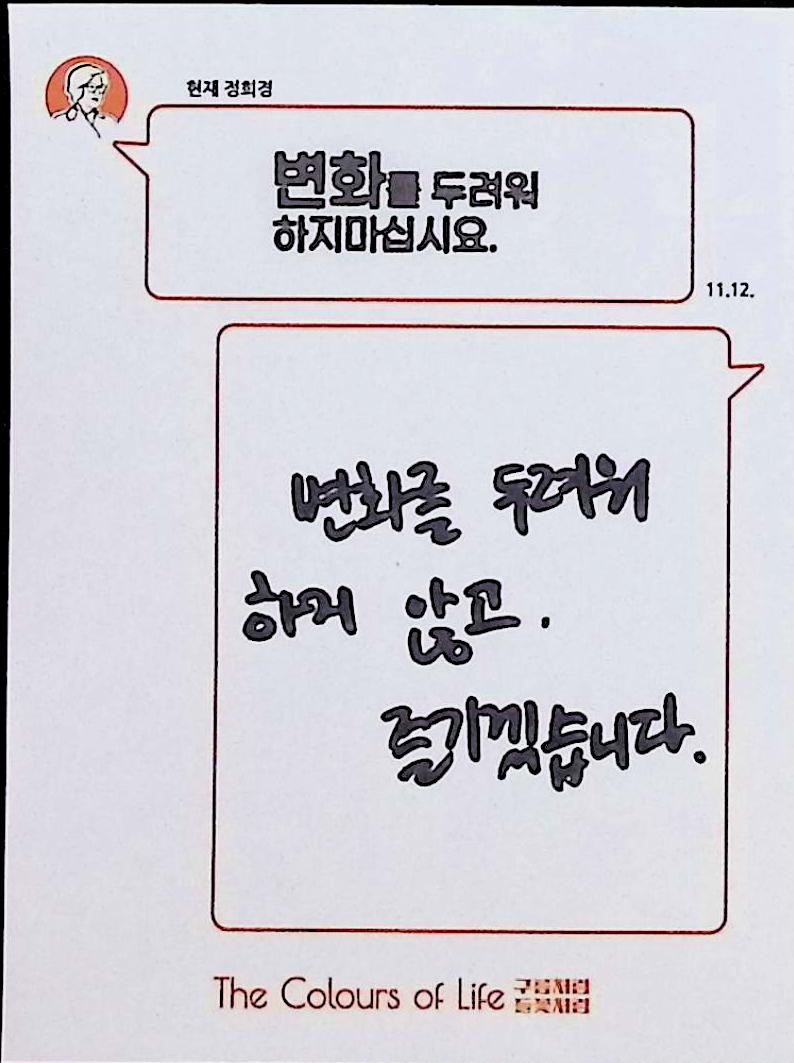 현재 정희경
변화를 두려워
하지마십시요.
11.12.
변화를 두려워
하지 않고.
즐기겠습니다.
The Colours of Life 구름처럼
들꽃처럼